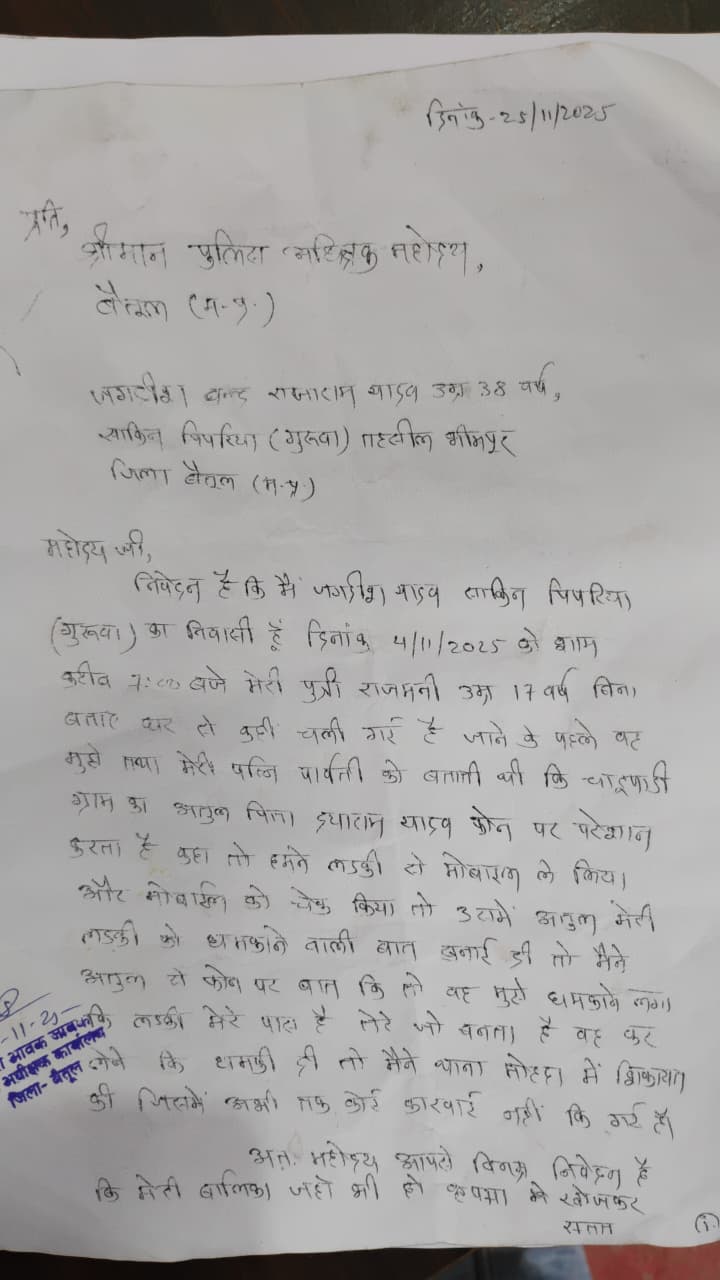 दिनांक-25/11/2025
प्रति,
श्रीमान पुलिस अधिक्षक महोदय,
बैतूल (म.प्र.)
जगदीश वल्द राजाराम यादव उम्र 38 वर्ष,
साकिन पिपरिया (गुरूवा) तहसील भीमपुर
जिला बैतूल (म.प्र)
महोदय जी,
निवेदन है कि मैं जगदीश यादव साकिन पिपरिया
(गुरूवा) का निवासी हूँ दिनांक 4/11/2025 को शाम
करीब 7:00 बजे मेरी पुत्री राजमनी उम्र 17 वर्ष बिना
बताए घर से कहीं चली गई है जाने के पहले वह
मुझे तथा मेरी पत्नि पार्वती को बताती थी कि
ग्राम का अतुल पिता दयाराम यादव फोन पर परेशान
करता है कहा तो हमने लडकी से मोबाइल ले लिया
और मोबाईल को चेक किया तो उसमें अतुल मेरी
लडकी को धमकाने वाली बात सुनाई दी तो मैने
अतुल से फोन पर बात कि तो वह मुझे धमकाने लगा
कि लडकी मेरे पास है तेरे जो बनता है वह कर
लेने कि धमकी दी तो मैने थाना मोहदा में शिकायत
की जिसमें अभी तक कोई कारवाई नहीं कि गई है।
अतः महोदय आपसे विनम्र निवेदन है
कि मेरी बालिका जहाँ भी हो कृपया मे खोजकर
(1.)
11-25
आवक जावक
अधीक्षक कार्यालय
जिला- बैतूल